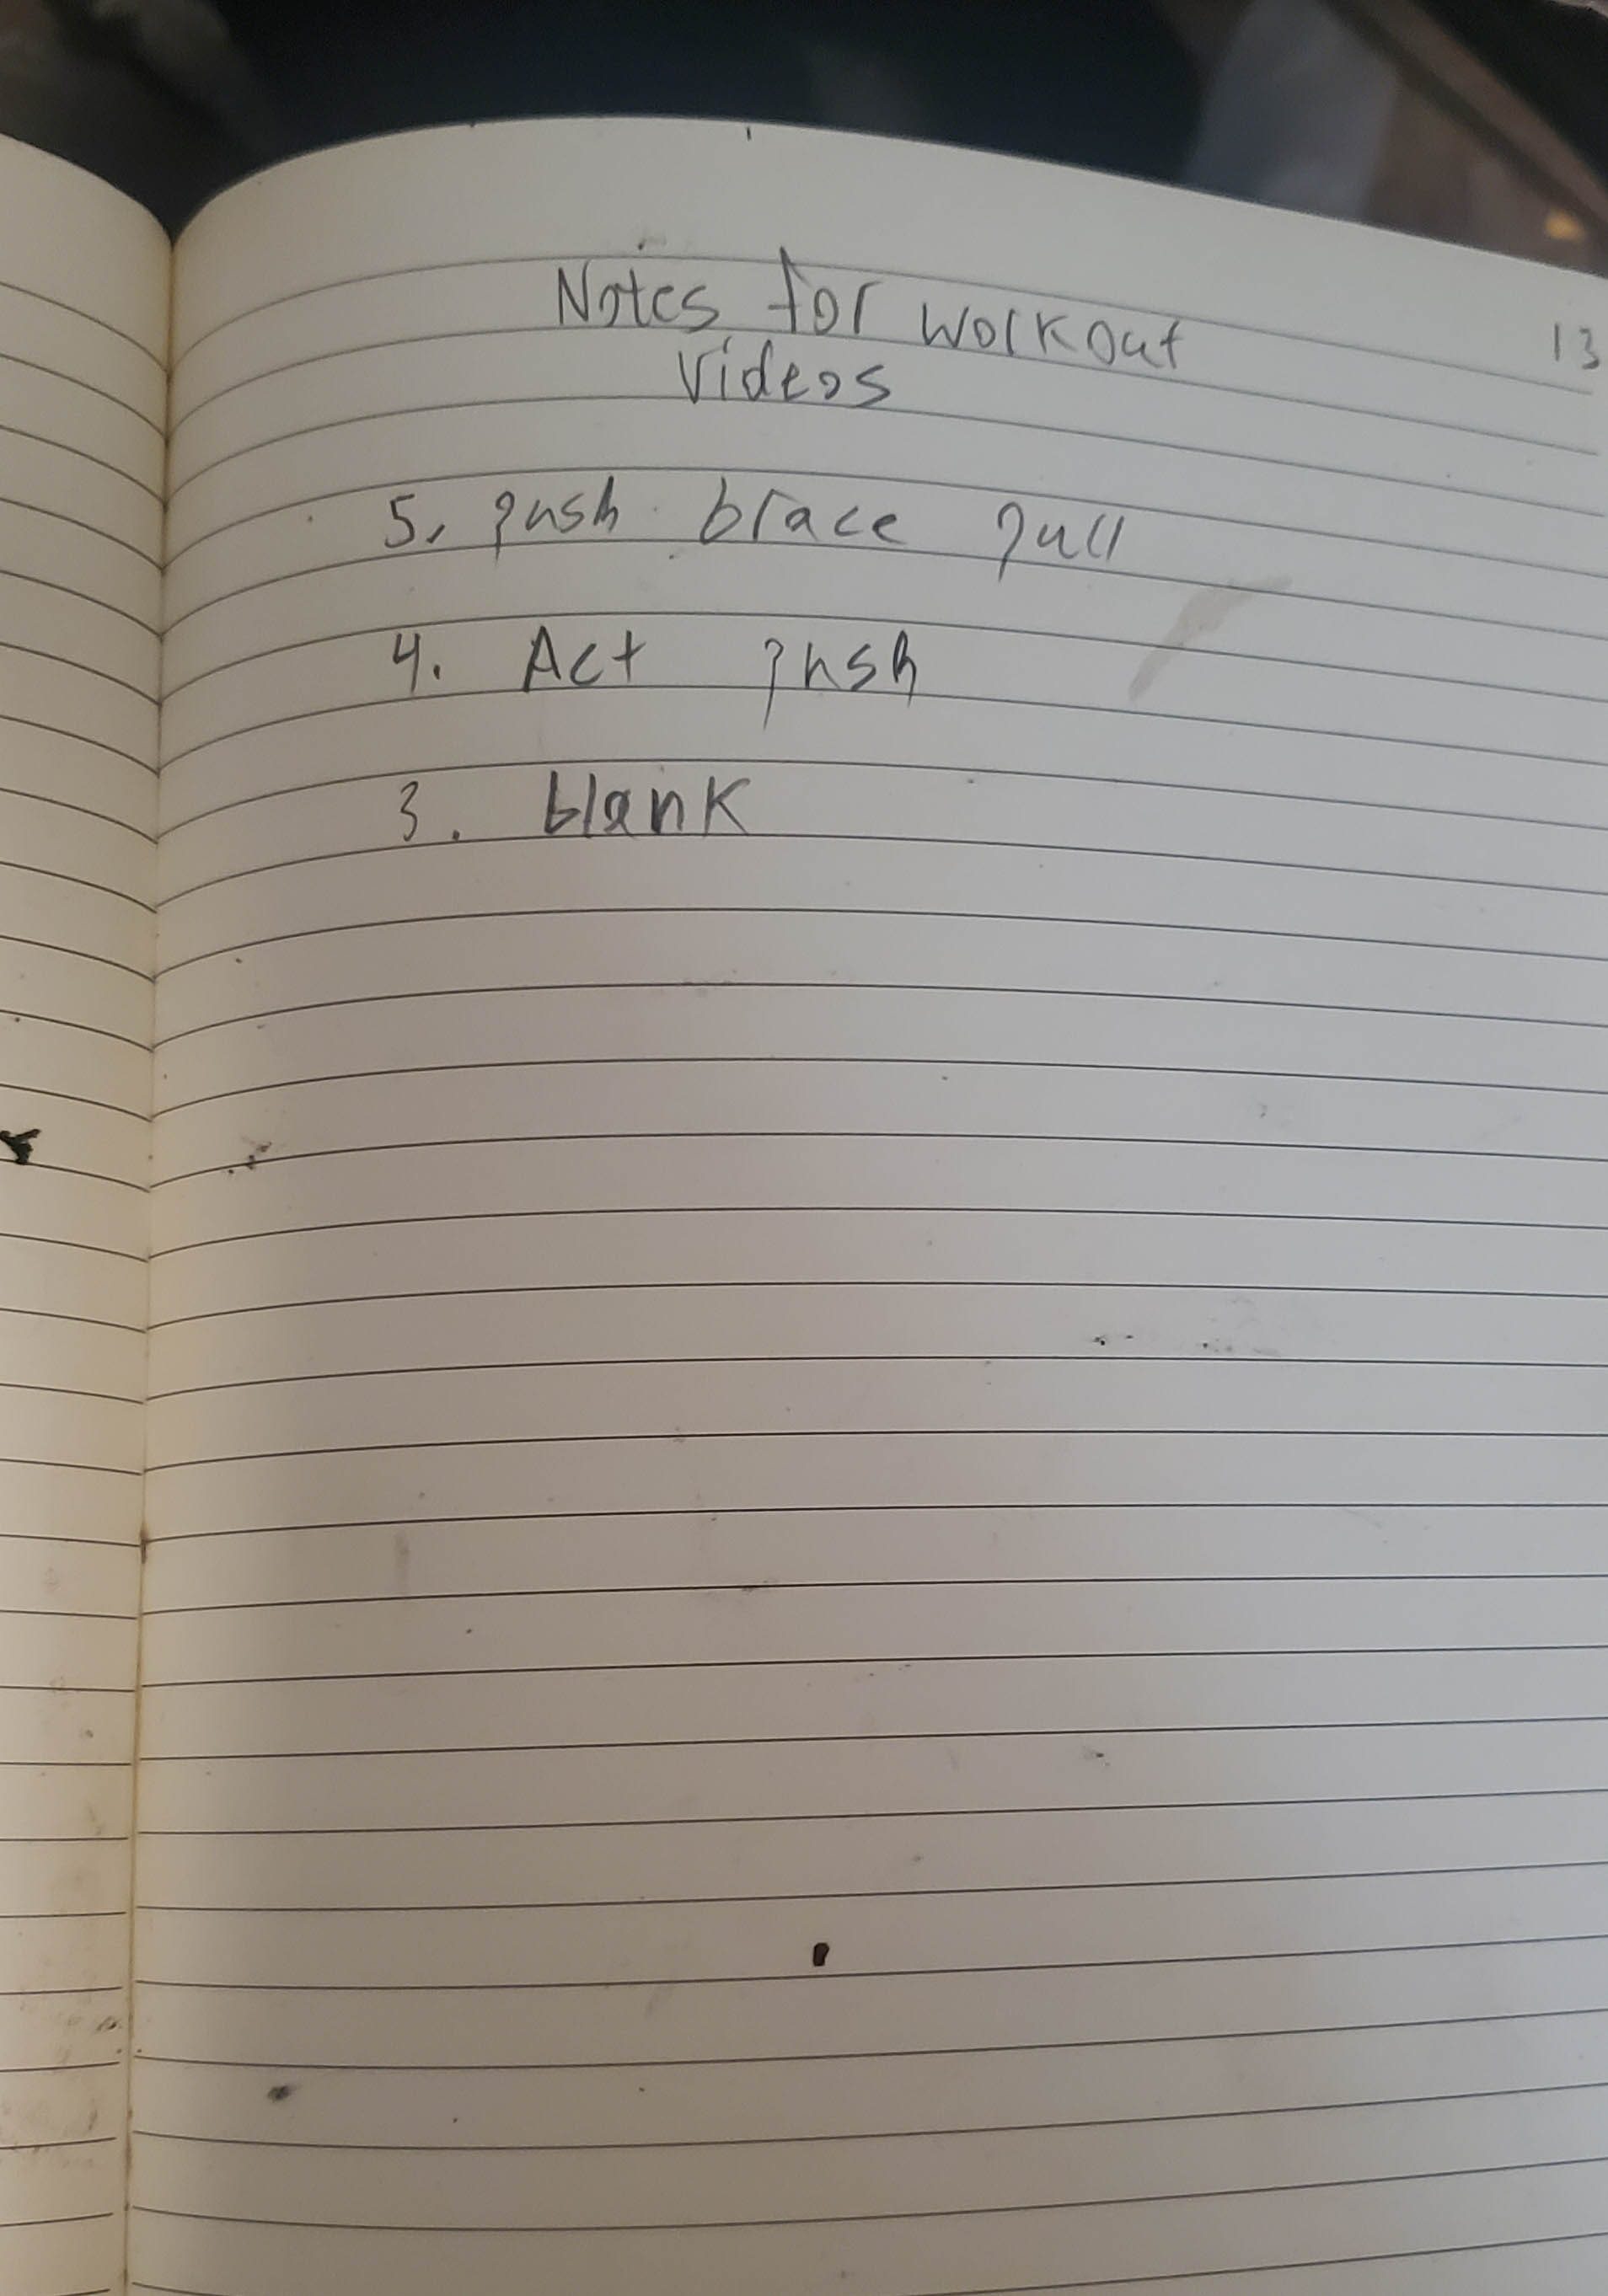 Notes for workout 13
Videos
5. push brace pull
4. Act push
3. blank